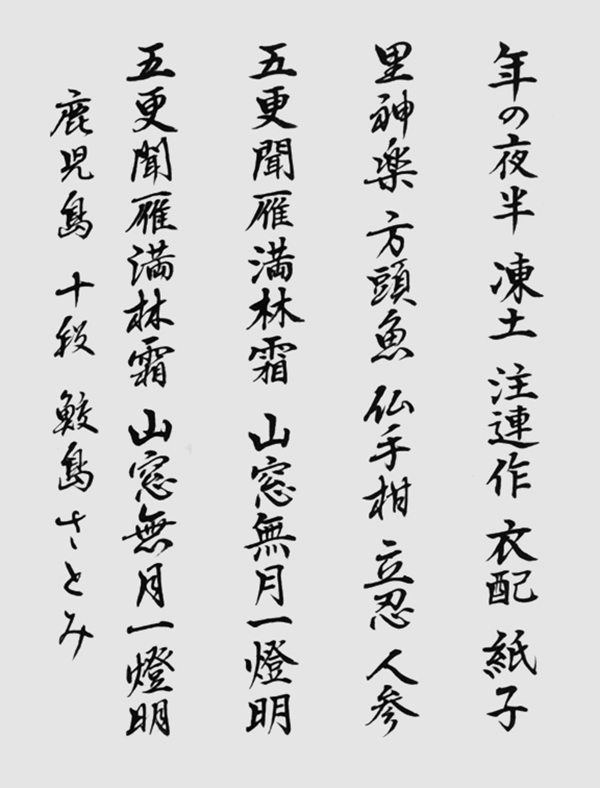 年の夜半 凍土 注連作 衣配 紙子
里神楽 方頭魚 仏手柑 立忍 人参
五更聞雁満林霜 山窓無月一燈明
五更聞雁満林霜 山窓無月一燈明
鹿児島 十段 鮫島さとみ